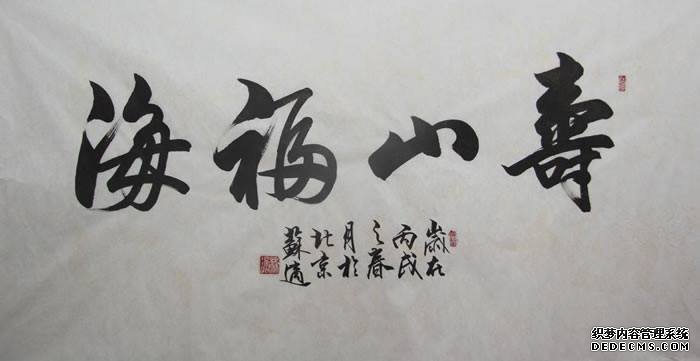 壽山福海
歲在
丙戌
之春
月於
北京
蘇適
织梦内容管理系统
DEDECMS.COM